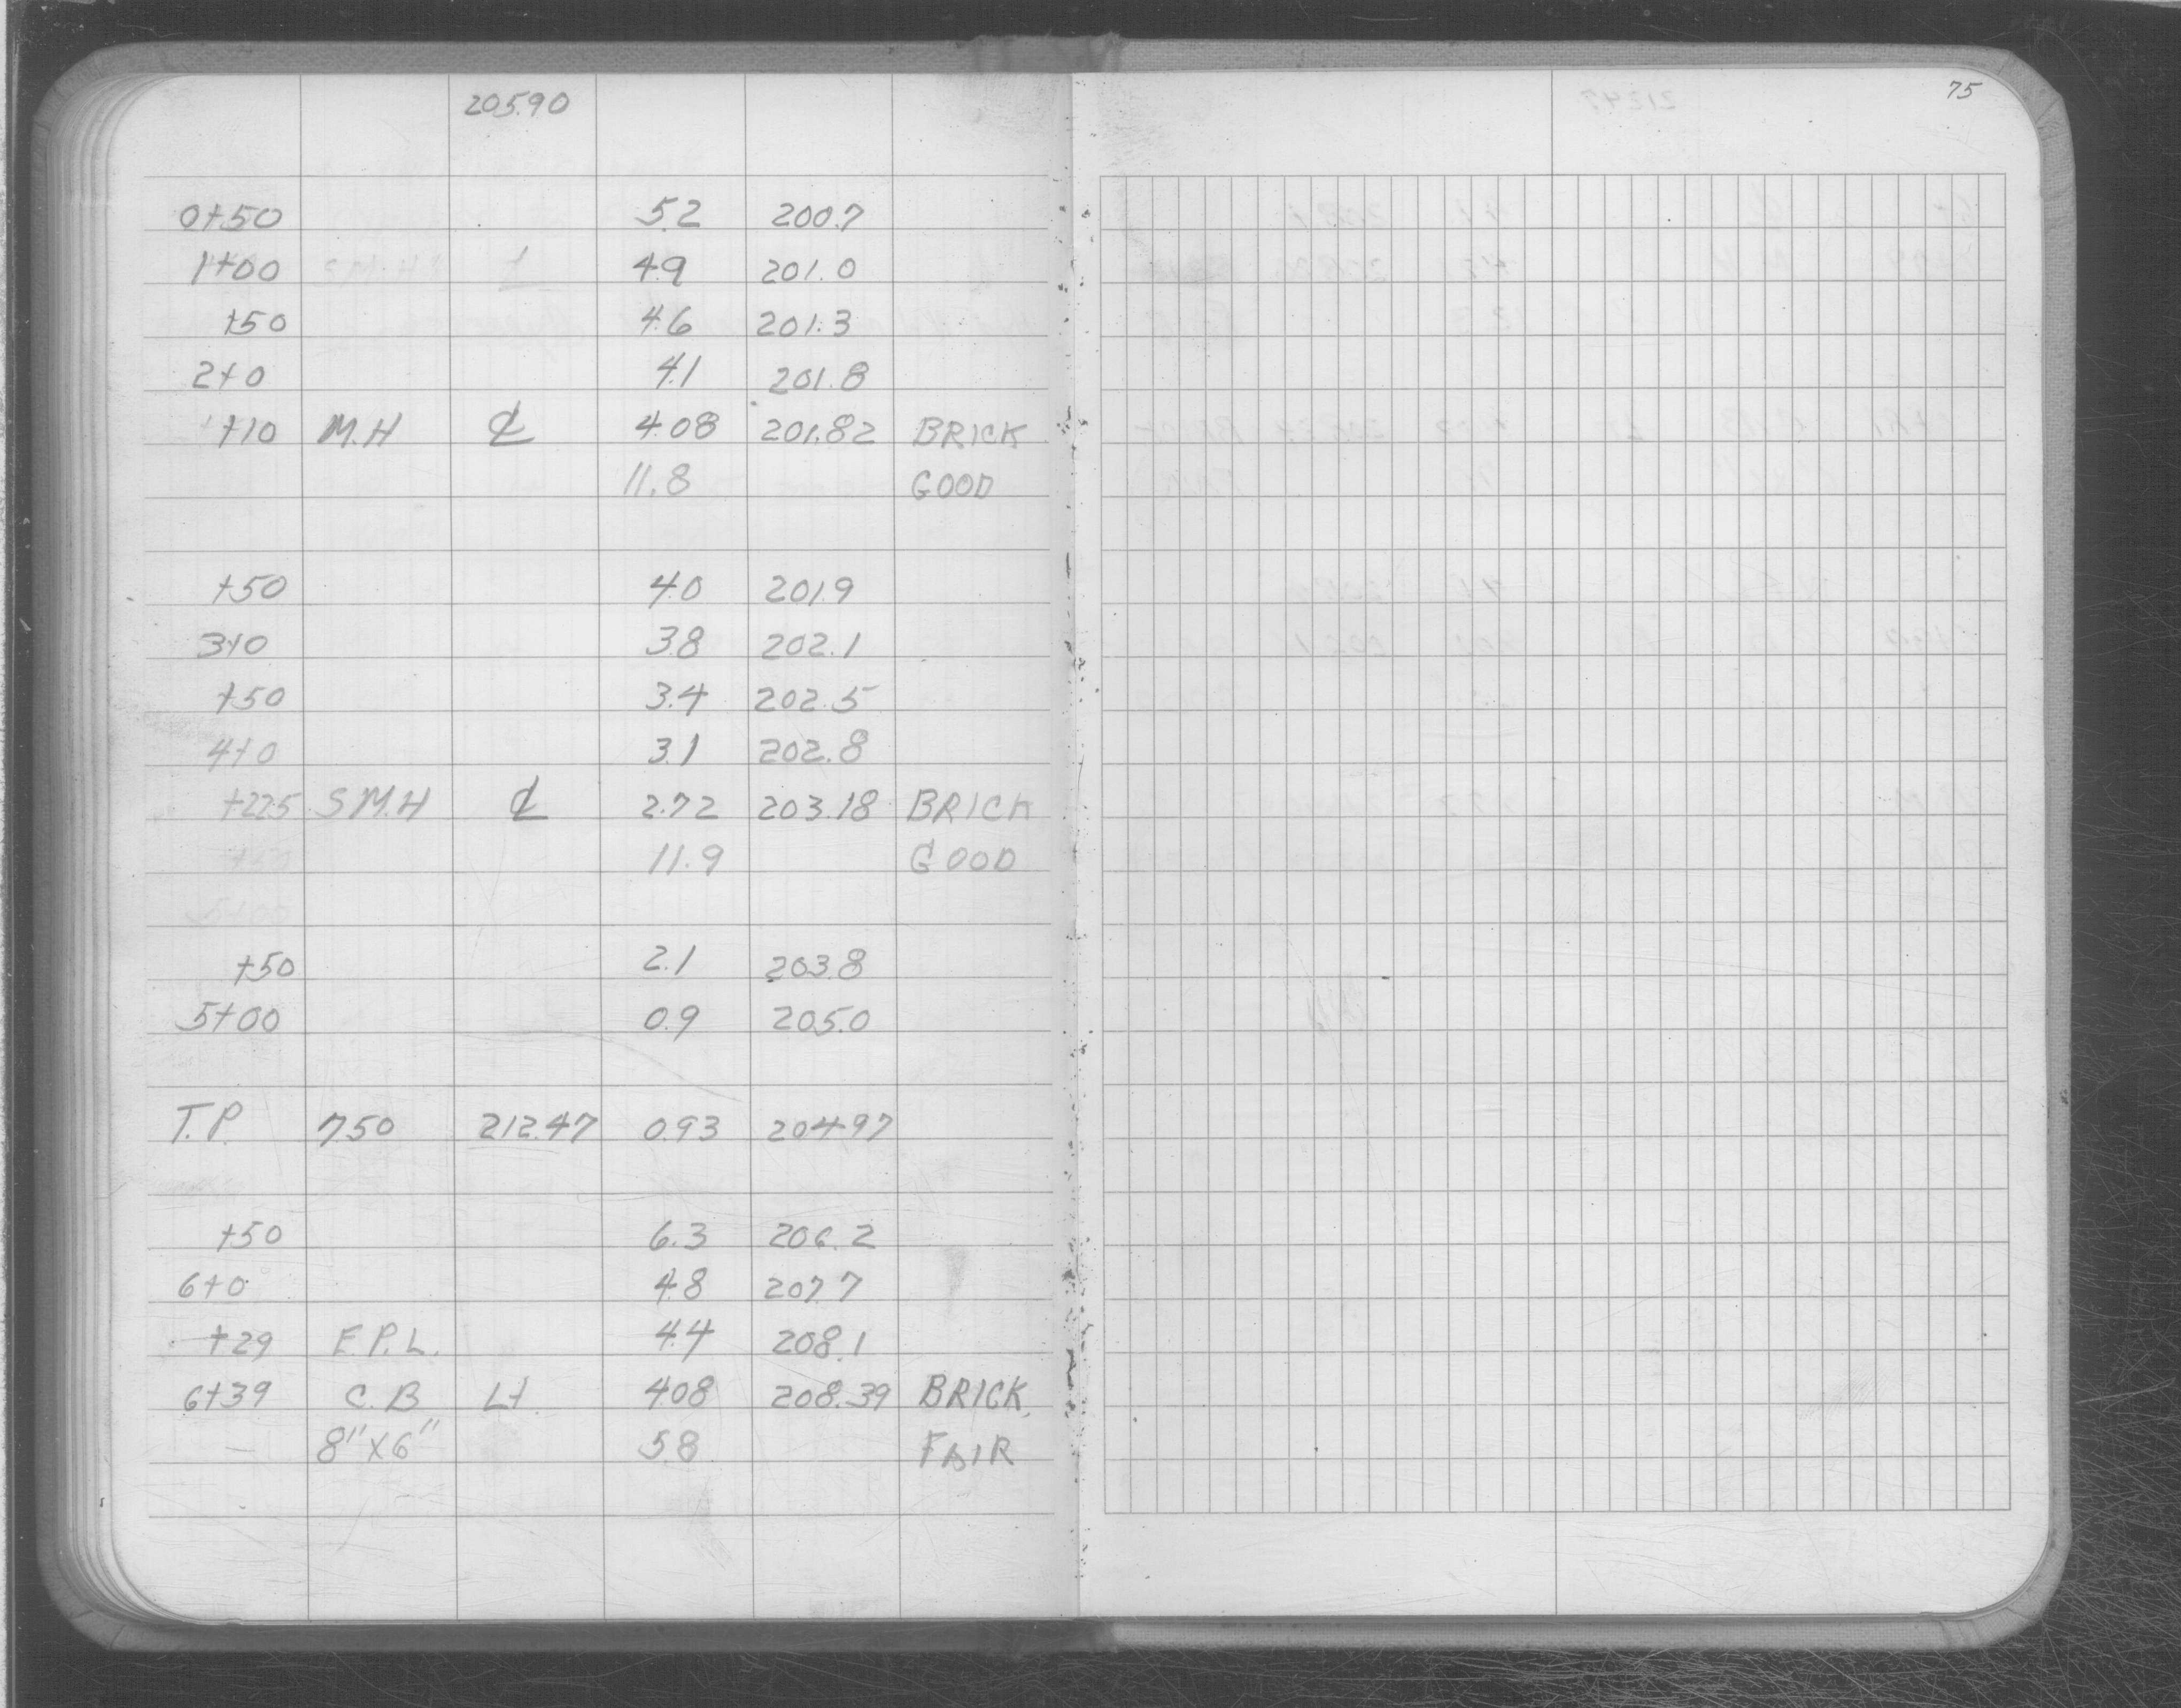 205.90
75
0+50 5.2 200.7
1+00 4.9 201.0
+50 4.6 201.3
2+0 4.1 201.8
+10 M.H ℄ 4.08 201.82 BRICK
11.8 GOOD
+50 4.0 201.9
3+0 3.8 202.1
+50 3.4 202.5
4+0 3.1 202.8
+22.5 S M.H ℄ 2.72 203.18 BRICK
+50 11.9 GOOD
5+00
+50 2.1 203.8
5+00 0.9 205.0
T.P. 7.50 212.47 0.93 204.97
+50 6.3 206.2
6+0 4.8 207.7
+29 E.P.L. 4.4 208.1
6+39 C.B Lt. 4.08 208.39 BRICK
8"X6" 5.8 FAIR